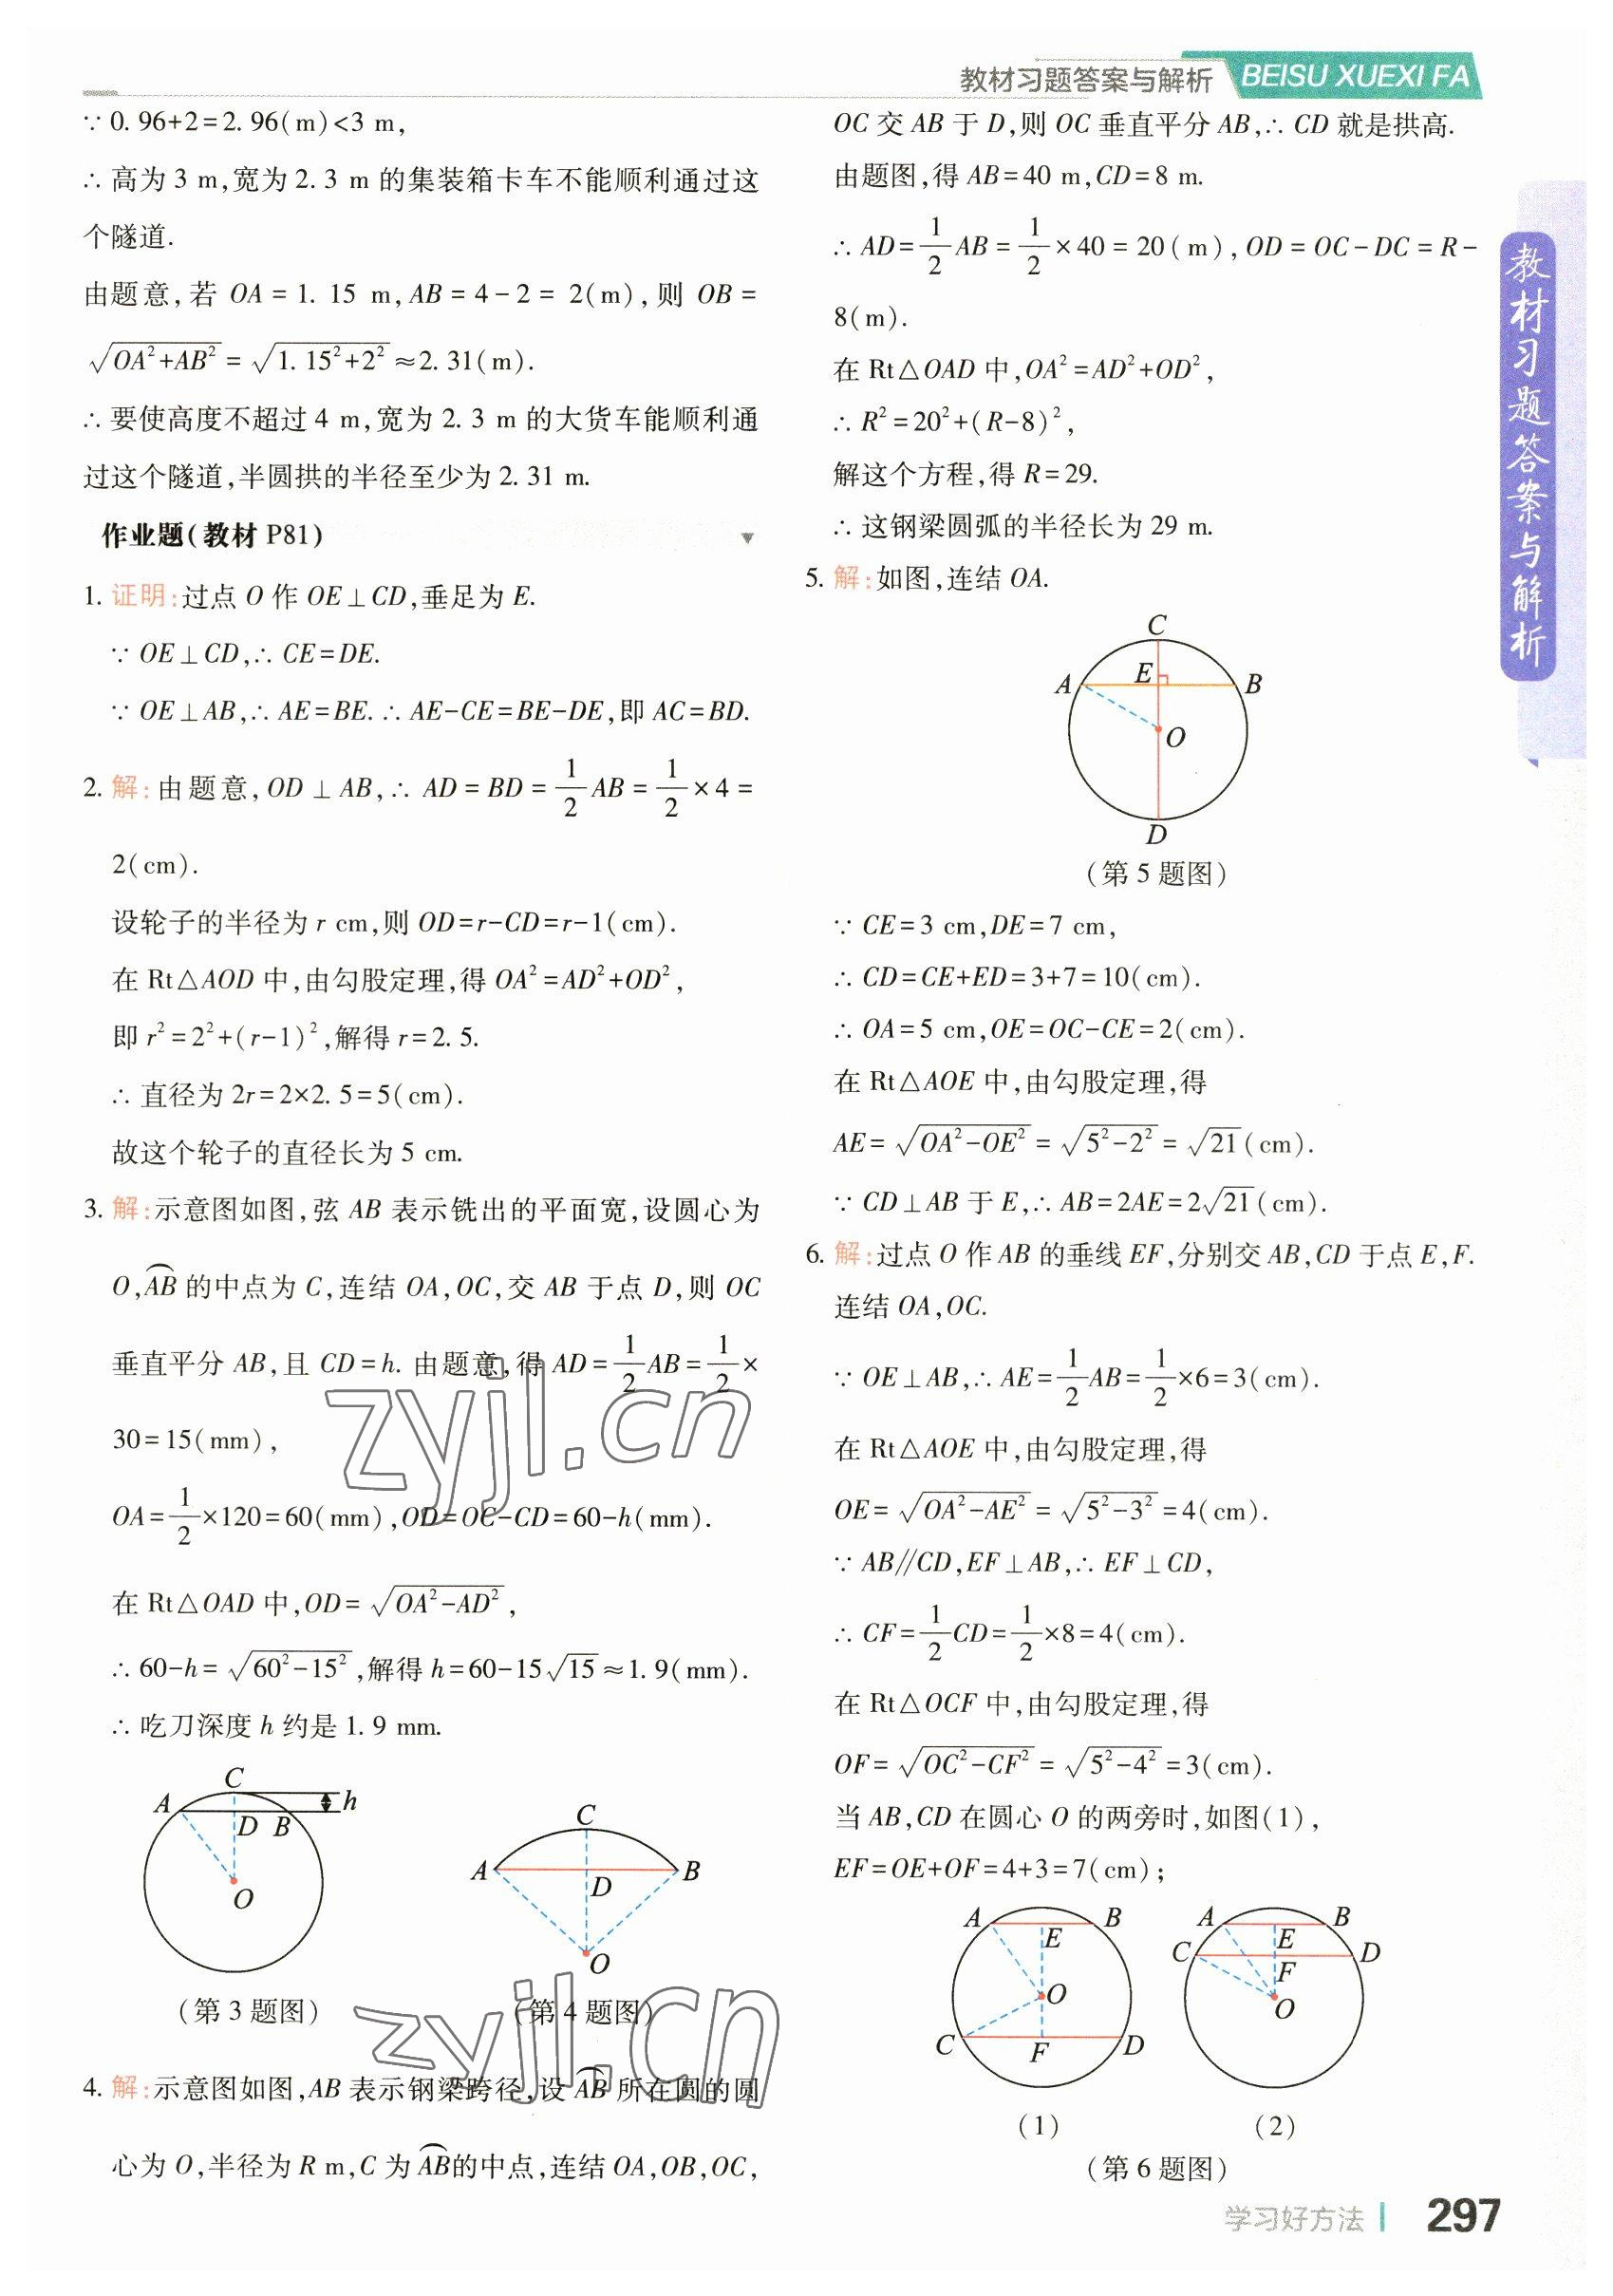 教材习题答案与解析 BEISU XUEXI FA
∵ 0.96+2=2.96(m)<3 m,
∴ 高为 3 m,宽为 2.3 m 的集装箱卡车不能顺利通过这
个隧道.
由题意,若 OA=1.15 m,AB=4-2=2(m),则 OB=
√(OA²+AB²)=√(1.15²+2²)≈2.31(m).
∴ 要使高度不超过 4 m,宽为 2.3 m 的大货车能顺利通
过这个隧道,半圆拱的半径至少为 2.31 m.
作业题(教材 P81)
1. 证明:过点 O 作 OE⊥CD,垂足为 E.
∵ OE⊥CD,∴ CE=DE.
∵ OE⊥AB,∴ AE=BE.∴ AE-CE=BE-DE,即 AC=BD.
2. 解:由题意,OD⊥AB,∴ AD=BD=1/2 AB=1/2×4=
2(cm).
设轮子的半径为 r cm,则 OD=r-CD=r-1(cm).
在 Rt△AOD 中,由勾股定理,得 OA²=AD²+OD²,
即 r²=2²+(r-1)²,解得 r=2.5.
∴ 直径为 2r=2×2.5=5(cm).
故这个轮子的直径长为 5 cm.
3. 解:示意图如图,弦 AB 表示铣出的平面宽,设圆心为
O,⌒AB 的中点为 C,连结 OA,OC,交 AB 于点 D,则 OC
垂直平分 AB,且 CD=h.由题意,得 AD=1/2 AB=1/2×
30=15(mm),
OA=1/2×120=60(mm),OD=OC-CD=60-h(mm).
在 Rt△OAD 中,OD=√(OA²-AD²),
∴ 60-h=√(60²-15²),解得 h=60-15√15≈1.9(mm).
∴ 吃刀深度 h 约是 1.9 mm.
C
A
h
D B
O
(第 3 题图)
C
A
B
D
O
(第 4 题图)
4. 解:示意图如图,AB 表示钢梁跨径,设 ⌒AB 所在圆的圆
心为 O,半径为 R m,C 为 ⌒AB 的中点,连结 OA,OB,OC,
OC 交 AB 于 D,则 OC 垂直平分 AB,∴ CD 就是拱高.
由题图,得 AB=40 m,CD=8 m.
∴ AD=1/2 AB=1/2×40=20(m),OD=OC-DC=R-
8(m).
在 Rt△OAD 中,OA²=AD²+OD²,
∴ R²=20²+(R-8)²,
解这个方程,得 R=29.
∴ 这钢梁圆弧的半径长为 29 m.
5. 解:如图,连结 OA.
C
E
A
B
O
D
(第 5 题图)
∵ CE=3 cm,DE=7 cm,
∴ CD=CE+ED=3+7=10(cm).
∴ OA=5 cm,OE=OC-CE=2(cm).
在 Rt△AOE 中,由勾股定理,得
AE=√(OA²-OE²)=√(5²-2²)=√21(cm).
∵ CD⊥AB 于 E,∴ AB=2AE=2√21(cm).
6. 解:过点 O 作 AB 的垂线 EF,分别交 AB,CD 于点 E,F.
连结 OA,OC.
∵ OE⊥AB,∴ AE=1/2 AB=1/2×6=3(cm).
在 Rt△AOE 中,由勾股定理,得
OE=√(OA²-AE²)=√(5²-3²)=4(cm).
∵ AB∥CD,EF⊥AB,∴ EF⊥CD,
∴ CF=1/2 CD=1/2×8=4(cm).
在 Rt△OCF 中,由勾股定理,得
OF=√(OC²-CF²)=√(5²-4²)=3(cm).
当 AB,CD 在圆心 O 的两旁时,如图(1),
EF=OE+OF=4+3=7(cm);
A
B
E
O
C
F
D
(1)
A
B
E
C
D
F
O
(2)
(第 6 题图)
教材习题答案与解析
zyjl.cn
zyjl.cn
学习好方法 297